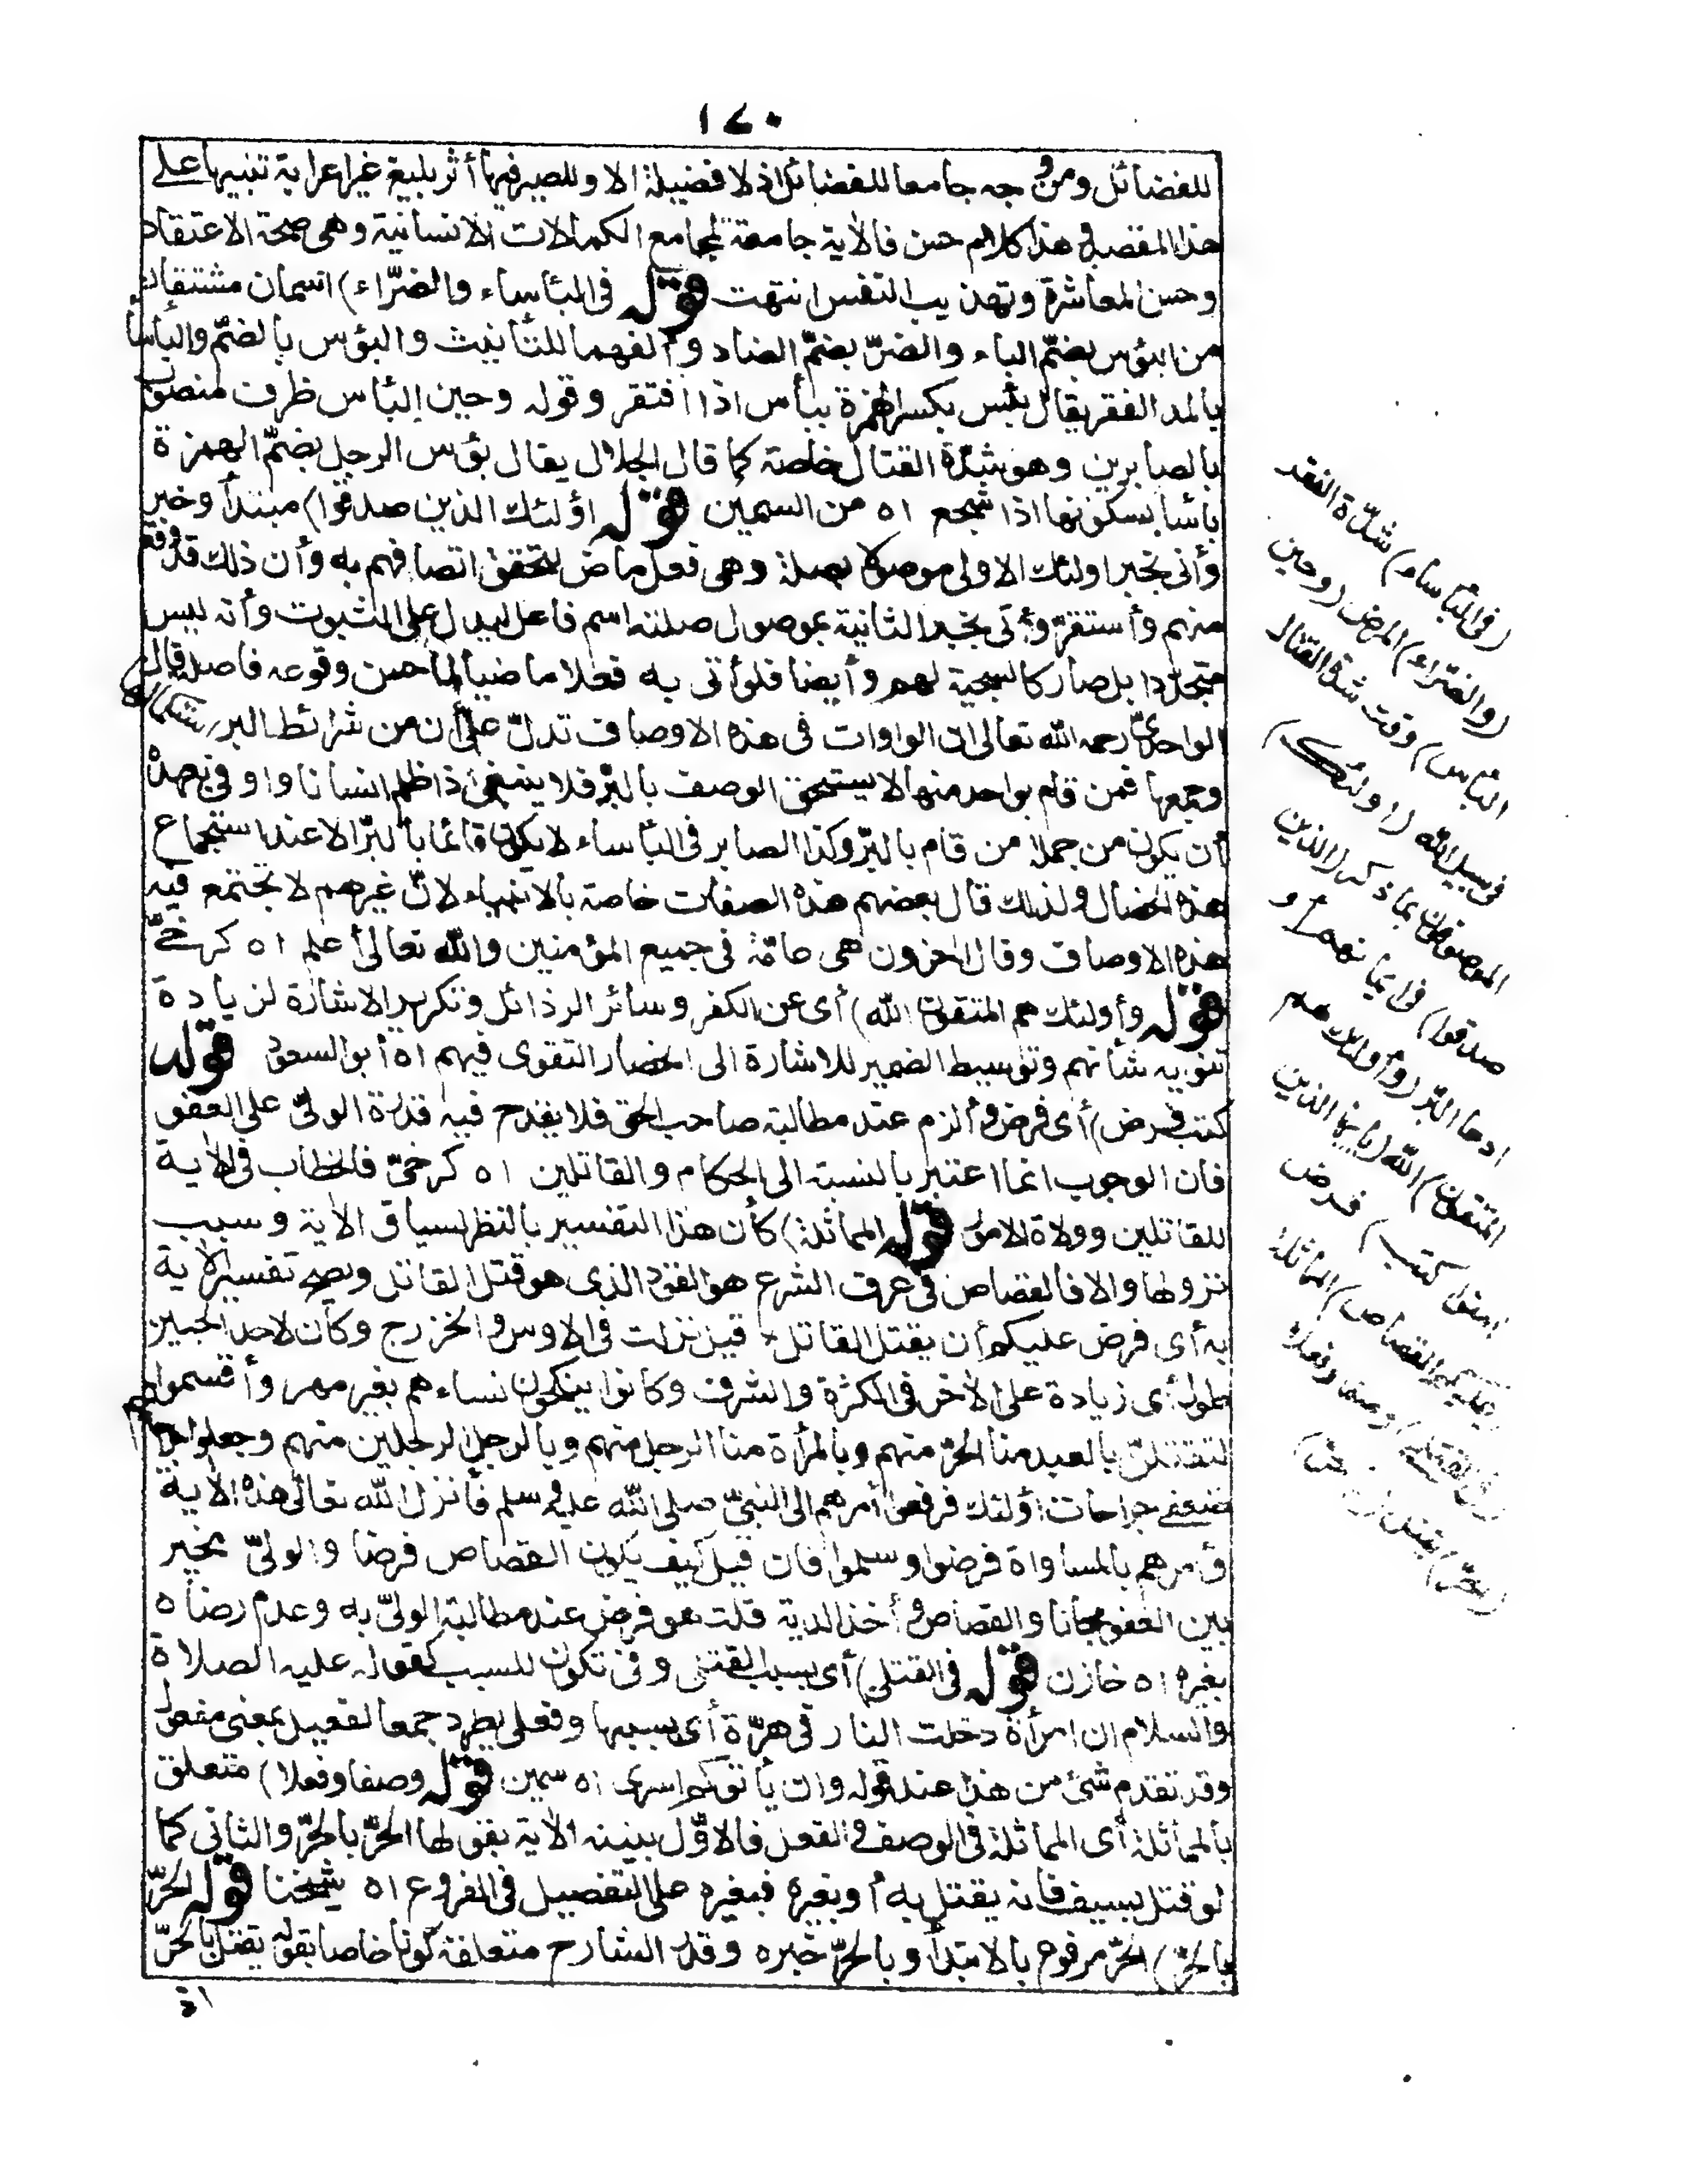 ١٤٠
للفضائل ومن وجه جامعا للفضائل اذ لا فضيلة الا وللصبر فيها أثر بليغ غير اعرابه تنبيها على
هذا المقصد وهذا كلام حسن فالاية جامعة لمجامع الكمالات الانسانية وهى صحة الاعتقاد
وحسن المعاشرة وتهذيب النفس انتهت قوله فى البأساء والضرّاء) اسمان مشتقان
من البؤس بضمّ الباء والضرّ بضمّ الضاد وألفهما للتأنيث والبؤس بالضمّ والبأسا
بالمد الفقر يقال بئس بكسر الهمزة يبأس اذا افتقر وقوله وحين البأس ظرف منصوب
بالصابرين وهو شدّة القتال خاصة كما قال الجلال يقال بؤس الرجل بضمّ الهمزة
بأسا بسكونها اذا شجع اه من السمين قوله اؤلئك الذين صدقوا) مبتدأ وخبر
وأتى بخبر اولئك الاولى موصولا بصلة وهى فعل ماض لتحقق اتصافهم به وأن ذلك قد وقع
منهم وأستقرّ وأتى بخبر الثانية بموصول صلته اسم فاعل ليدل على الثبوت وأنه ليس
متجدّدا بل صار كالسجية لهم وأيضا فلو أتى به فعلا ماضيا لما حسن وقوعه فاصلة قال
الواحدىّ رحمه الله تعالى ان الواوات فى هذه الاوصاف تدلّ على أن من شرائط البر استكمالها
وجمعها فمن قام بواحد منها لا يستحق الوصف بالبرّ فلا ينبغى اذا ظلم انسانا واوفى بعهده
أن يكون من جملة من قام بالبرّ وكذا الصابر فى البأساء لا يكون قائما بالبرّ الا عند استجماع
هذه الخصال ولذلك قال بعضهم هذه الصفات خاصة بالانبياء لانّ غيرهم لا تجتمع فيه
هذه الاوصاف وقال اخرون هى عامّة فى جميع المؤمنين والله تعالى أعلم اه كرخىّ
قوله وأولئك هم المتقون الله) أى عن الكفر وسائر الرذائل وتكرير الاشارة لزيادة
تنويه شأنهم وتوسيط الضمير للاشارة الى انحصار التقوى فيهم اه أبو السعود قوله
كتب فرض) أى فرض وألزم عند مطالبة صاحب الحق فلا يقدح فيه قدرة الولىّ على العفو
فان الوجوب انما اعتبر بالنسبة الى الحكام والقاتلين اه كرخىّ فالخطاب فى الاية
للقاتلين وولاة الامور قوله المماثلة) كأن هذا التفسير بالنظر لسياق الاية وسبب
نزولها والا فالقصاص فى عرف الشرع هو القود الذى هو قتل القاتل ويصح تفسير الاية
به أى فرض عليكم أن يقتل القاتل قيل نزلت فى الاوس والخزرج وكان لاحد الحيين
طول أى زيادة على الاخر فى الكثرة والشرف وكانوا ينكحون نساءهم بغير مهر وأقسموا
لنقتلنّ بالعبد منا الحرّ منهم وبالمرأة منا الرجل منهم وبالرجل الرجلين منهم وجعلوا جراحاتهم
ضعفى جراحات اؤلئك فرفعوا أمرهم الى النبىّ صلى الله عليه وسلم فأنزل الله تعالى هذه الاية
وأمرهم بالمساواة فرضوا وسلموا فان قيل كيف يكون القصاص فرضا والولىّ مخير
بين العفو مجانا والقصاص وأخذ الدية قلت هو فرض عند مطالبة الولىّ به وعدم رضاه
بغيره اه خازن قوله فى القتلى) أى بسبب القتلى وفى تكون للسبب كقوله عليه الصلاة
والسلام ان امرأة دخلت النار فى هرّة أى بسببها وفعلى يطرد جمعا لفعيل بمعنى مفعول
وقد تقدم شئ من هذا عند قوله وان يأتوكم اسرى اه سمين قوله وصفا وفعلا) متعلق
بالمماثلة أى المماثلة فى الوصف والفعل فالاوّل بينته الاية بقولها الحرّ بالحرّ والثانى كما
لو قتل بسيف فانه يقتل به أو بغيره فبغيره على التفصيل فى الفروع اه شيخنا قوله الحرّ
بالحرّ) الحرّ مرفوع بالابتدأ وبالحرّ خبره وقدر الشارح متعلقه كونا خاصا بقوله يقتل بالحرّ
(فى البأساء) شدّة الفقر
(والضرّاء) المرض (وحين
البأس) وقت شدّة القتال
فى سبيل الله (اولئك)
الموصوفون بما ذكر (الذين
صدقوا) فى ايمانهم أو
ادعا البرّ (وأولئك هم
المتقون) الله (يايها الذين
امنوا كتب) فرض
(عليكم القصاص) المماثلة
(فى القتلى) وصفا وفعلا